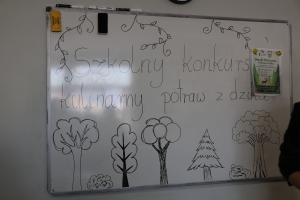 Szkolny konkurs
kulinarny potraw z dzika